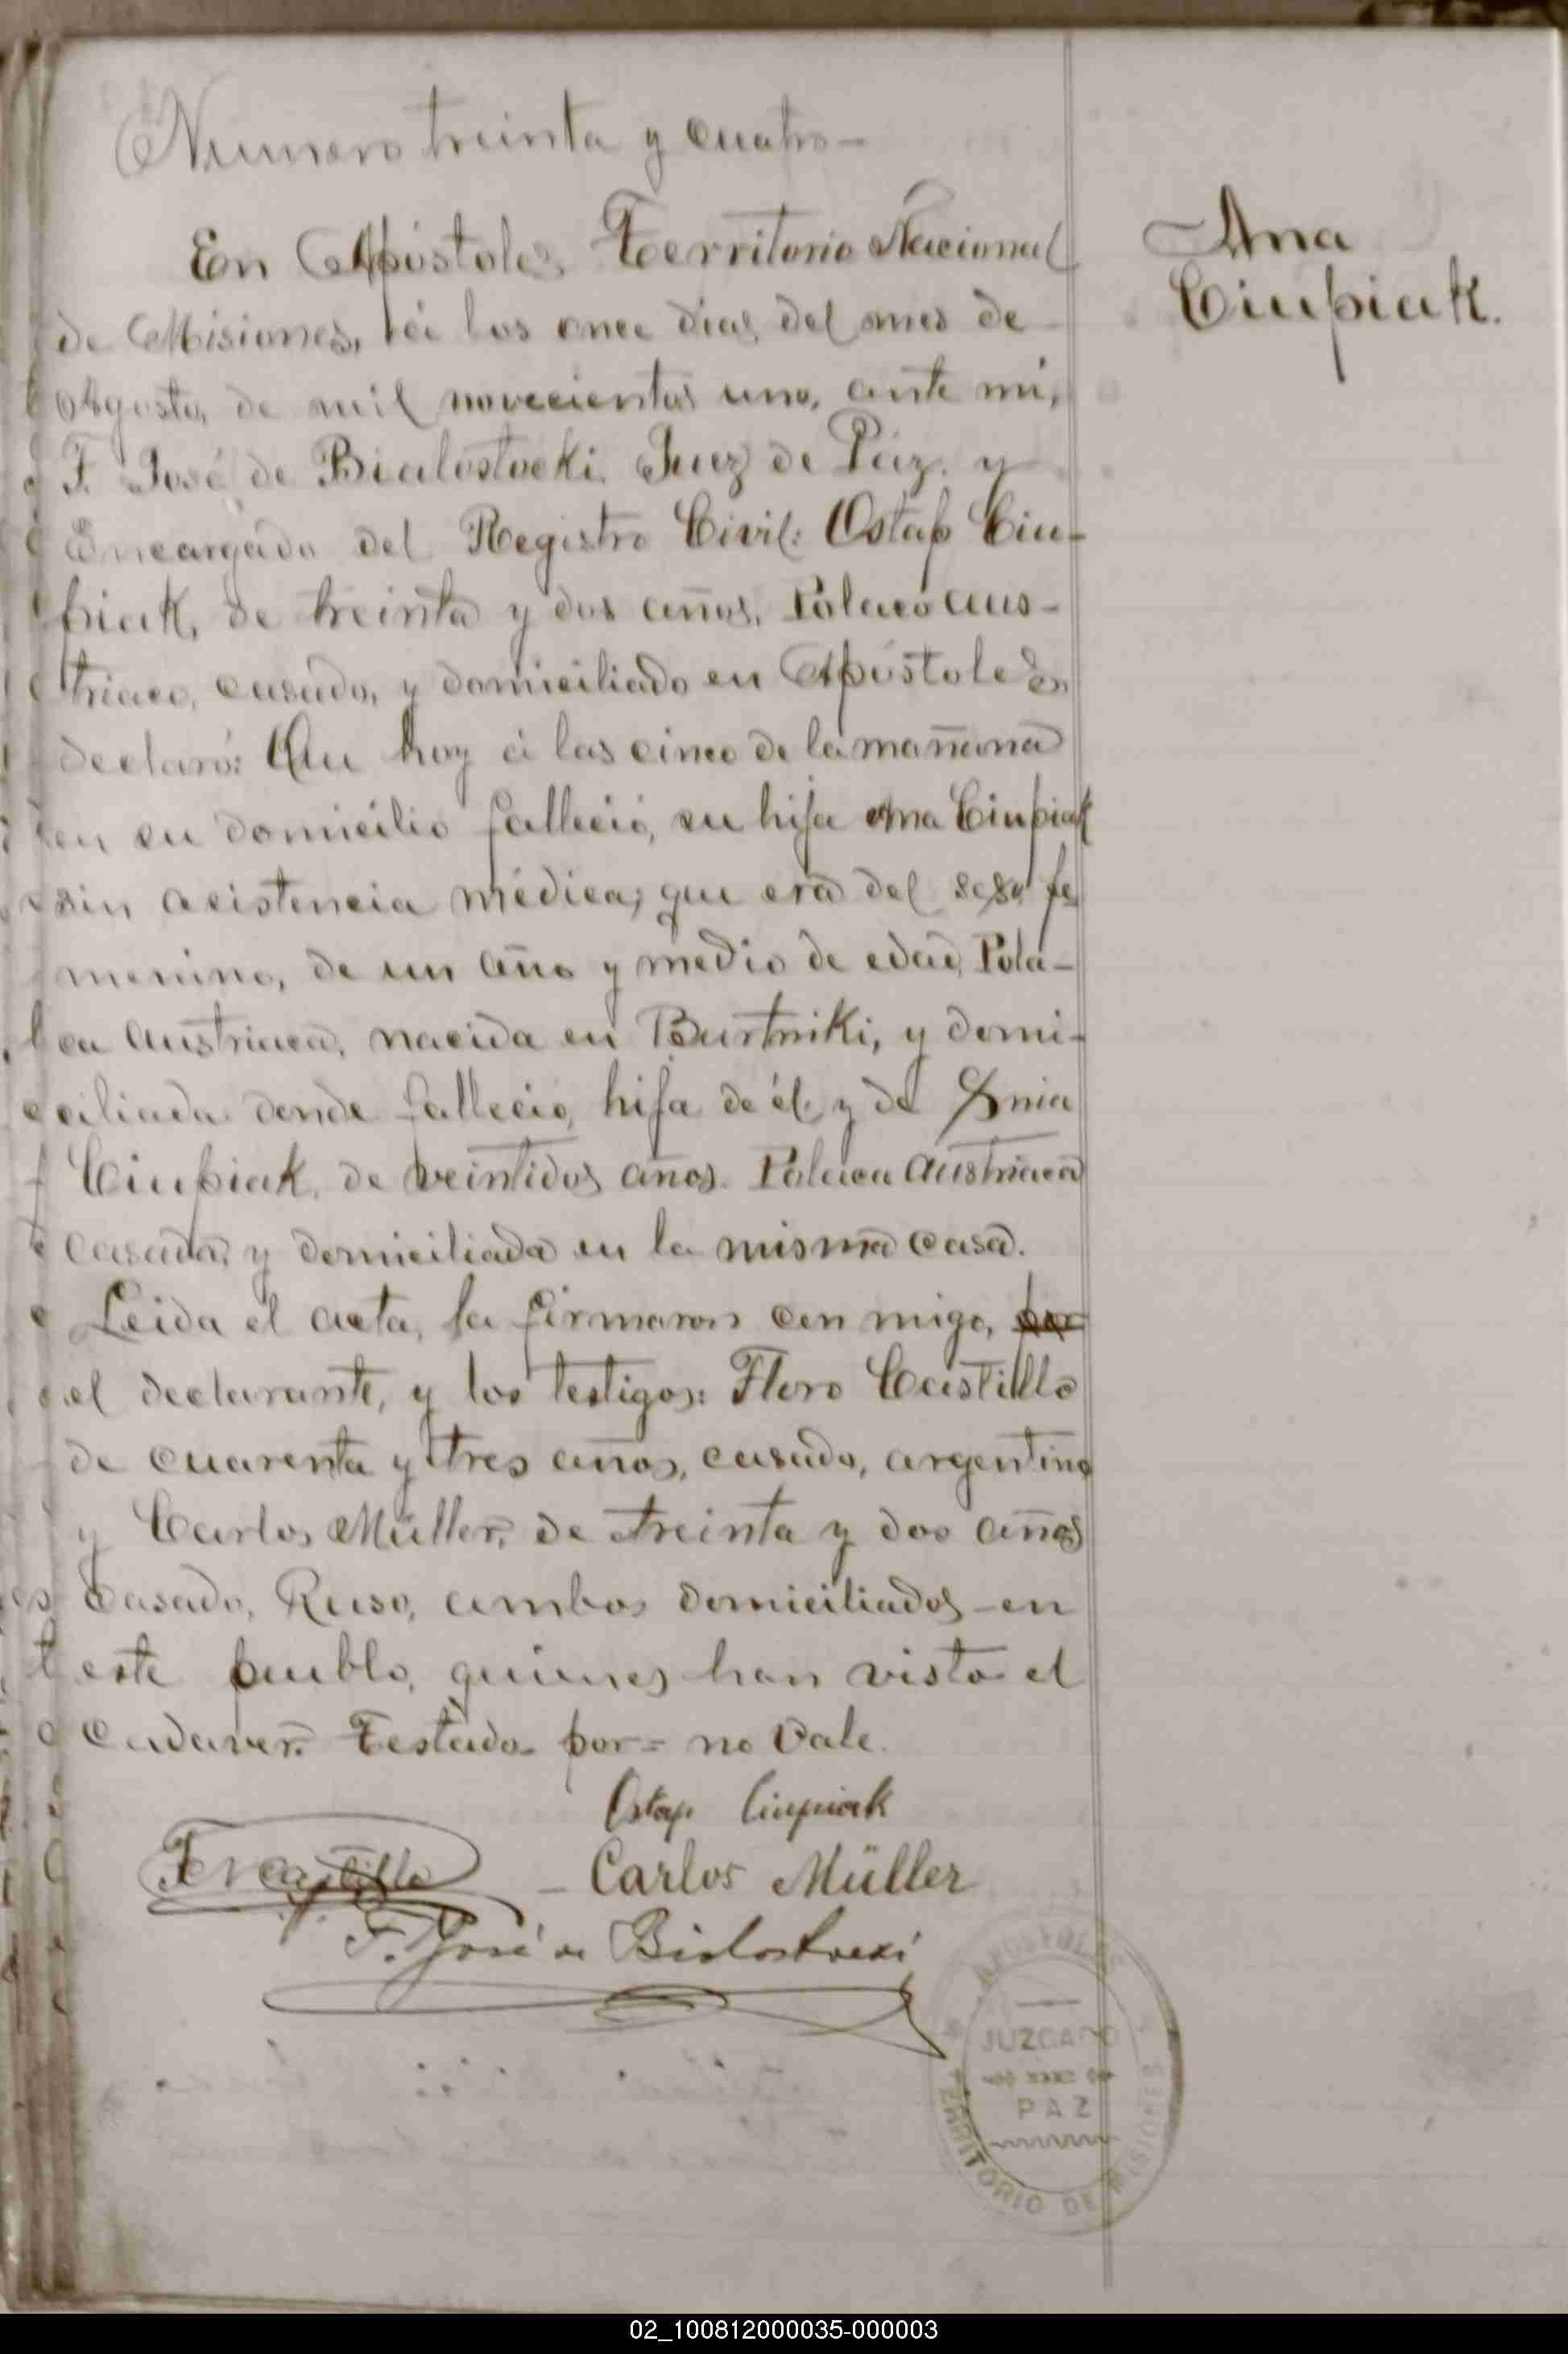 Numero treinta y cuatro—
En Apóstoles, Territorio Nacional
de Misiones, á los once días del mes de
Agosto, de mil novecientos uno, ante mi,
F. José de Bialostocki, Juez de Paz, y
Encargado del Registro Civil: Ostap Ciu-
piak, de treinta y dos años, Polaco aus-
triaco, casado, y domiciliado en Apóstoles,
declaró: Que hoy á las cinco de la mañana
en su domicilio falleció, su hija Ana Ciupiak
sin acistencia médica; que era del sexo fe
menino, de un año y medio de edad, Pola-
ca austriaca, nacida en Burtniki, y domi-
ciliada donde falleció, hija de él, y de
Ciupiak, de veintidos años. Polaca austriaca
casada, y domiciliada en la misma casa.
Leida el acta, la firmaron con migo, por
el declarante, y los testigos: Floro Castillo
de cuarenta y tres años, casado, argentino
y Carlos Müller, de treinta y dos años
Casado, Ruso, ambos domiciliados en
este pueblo, quienes han visto el
Cadaver. Testado por = no Vale.
Ostap Ciupiak
Castillo — Carlos Müller
F. José de Bialostocki
Ana
Ciupiak.
APOSTOLES
JUZGADO
DE
PAZ
TERRITORIO DE MISIONES
02_100812000035-000003